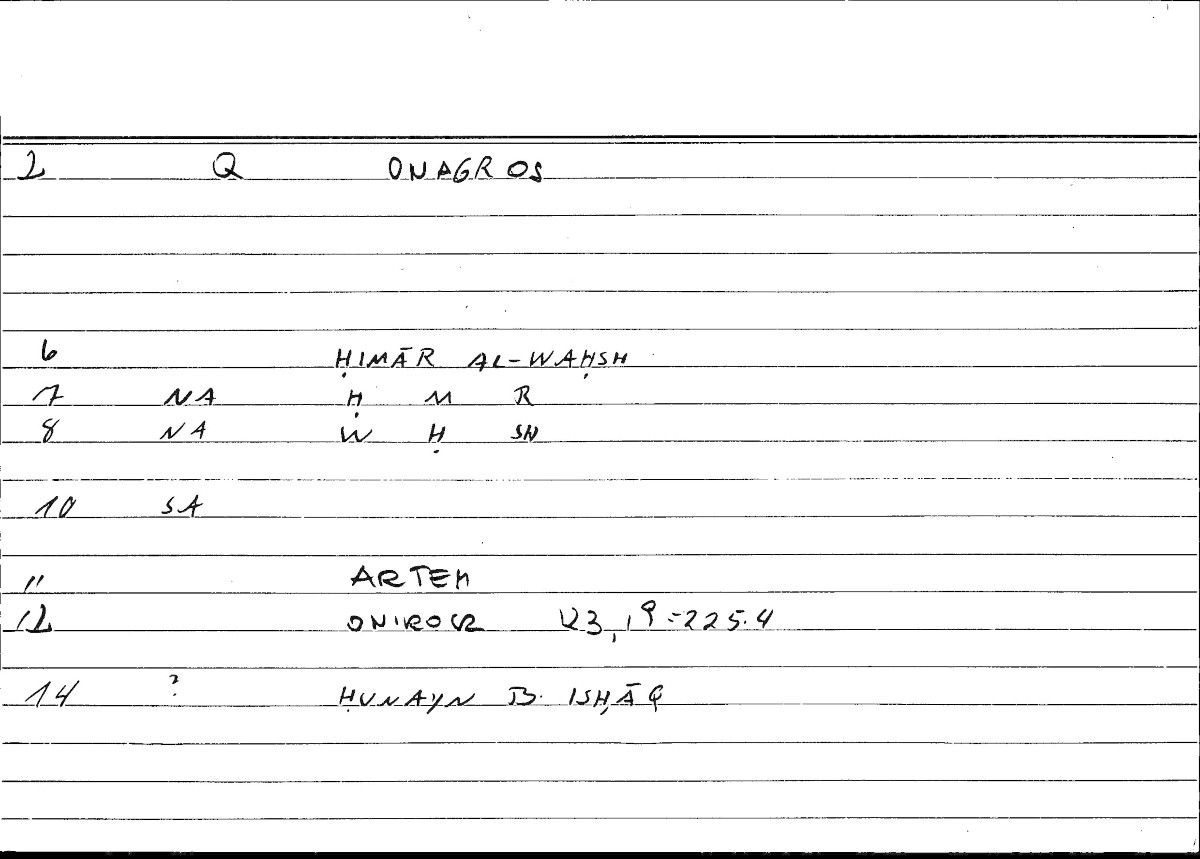 2 Q ONAGROS
6 ḤIMĀR AL-WAḤSH
7 NA Ḥ M R
8 NA W Ḥ SH
10 SA
11 ARTEM
12 ONIROCR 123,19=225.4
14 ? ḤUNAYN B. ISḤĀQ